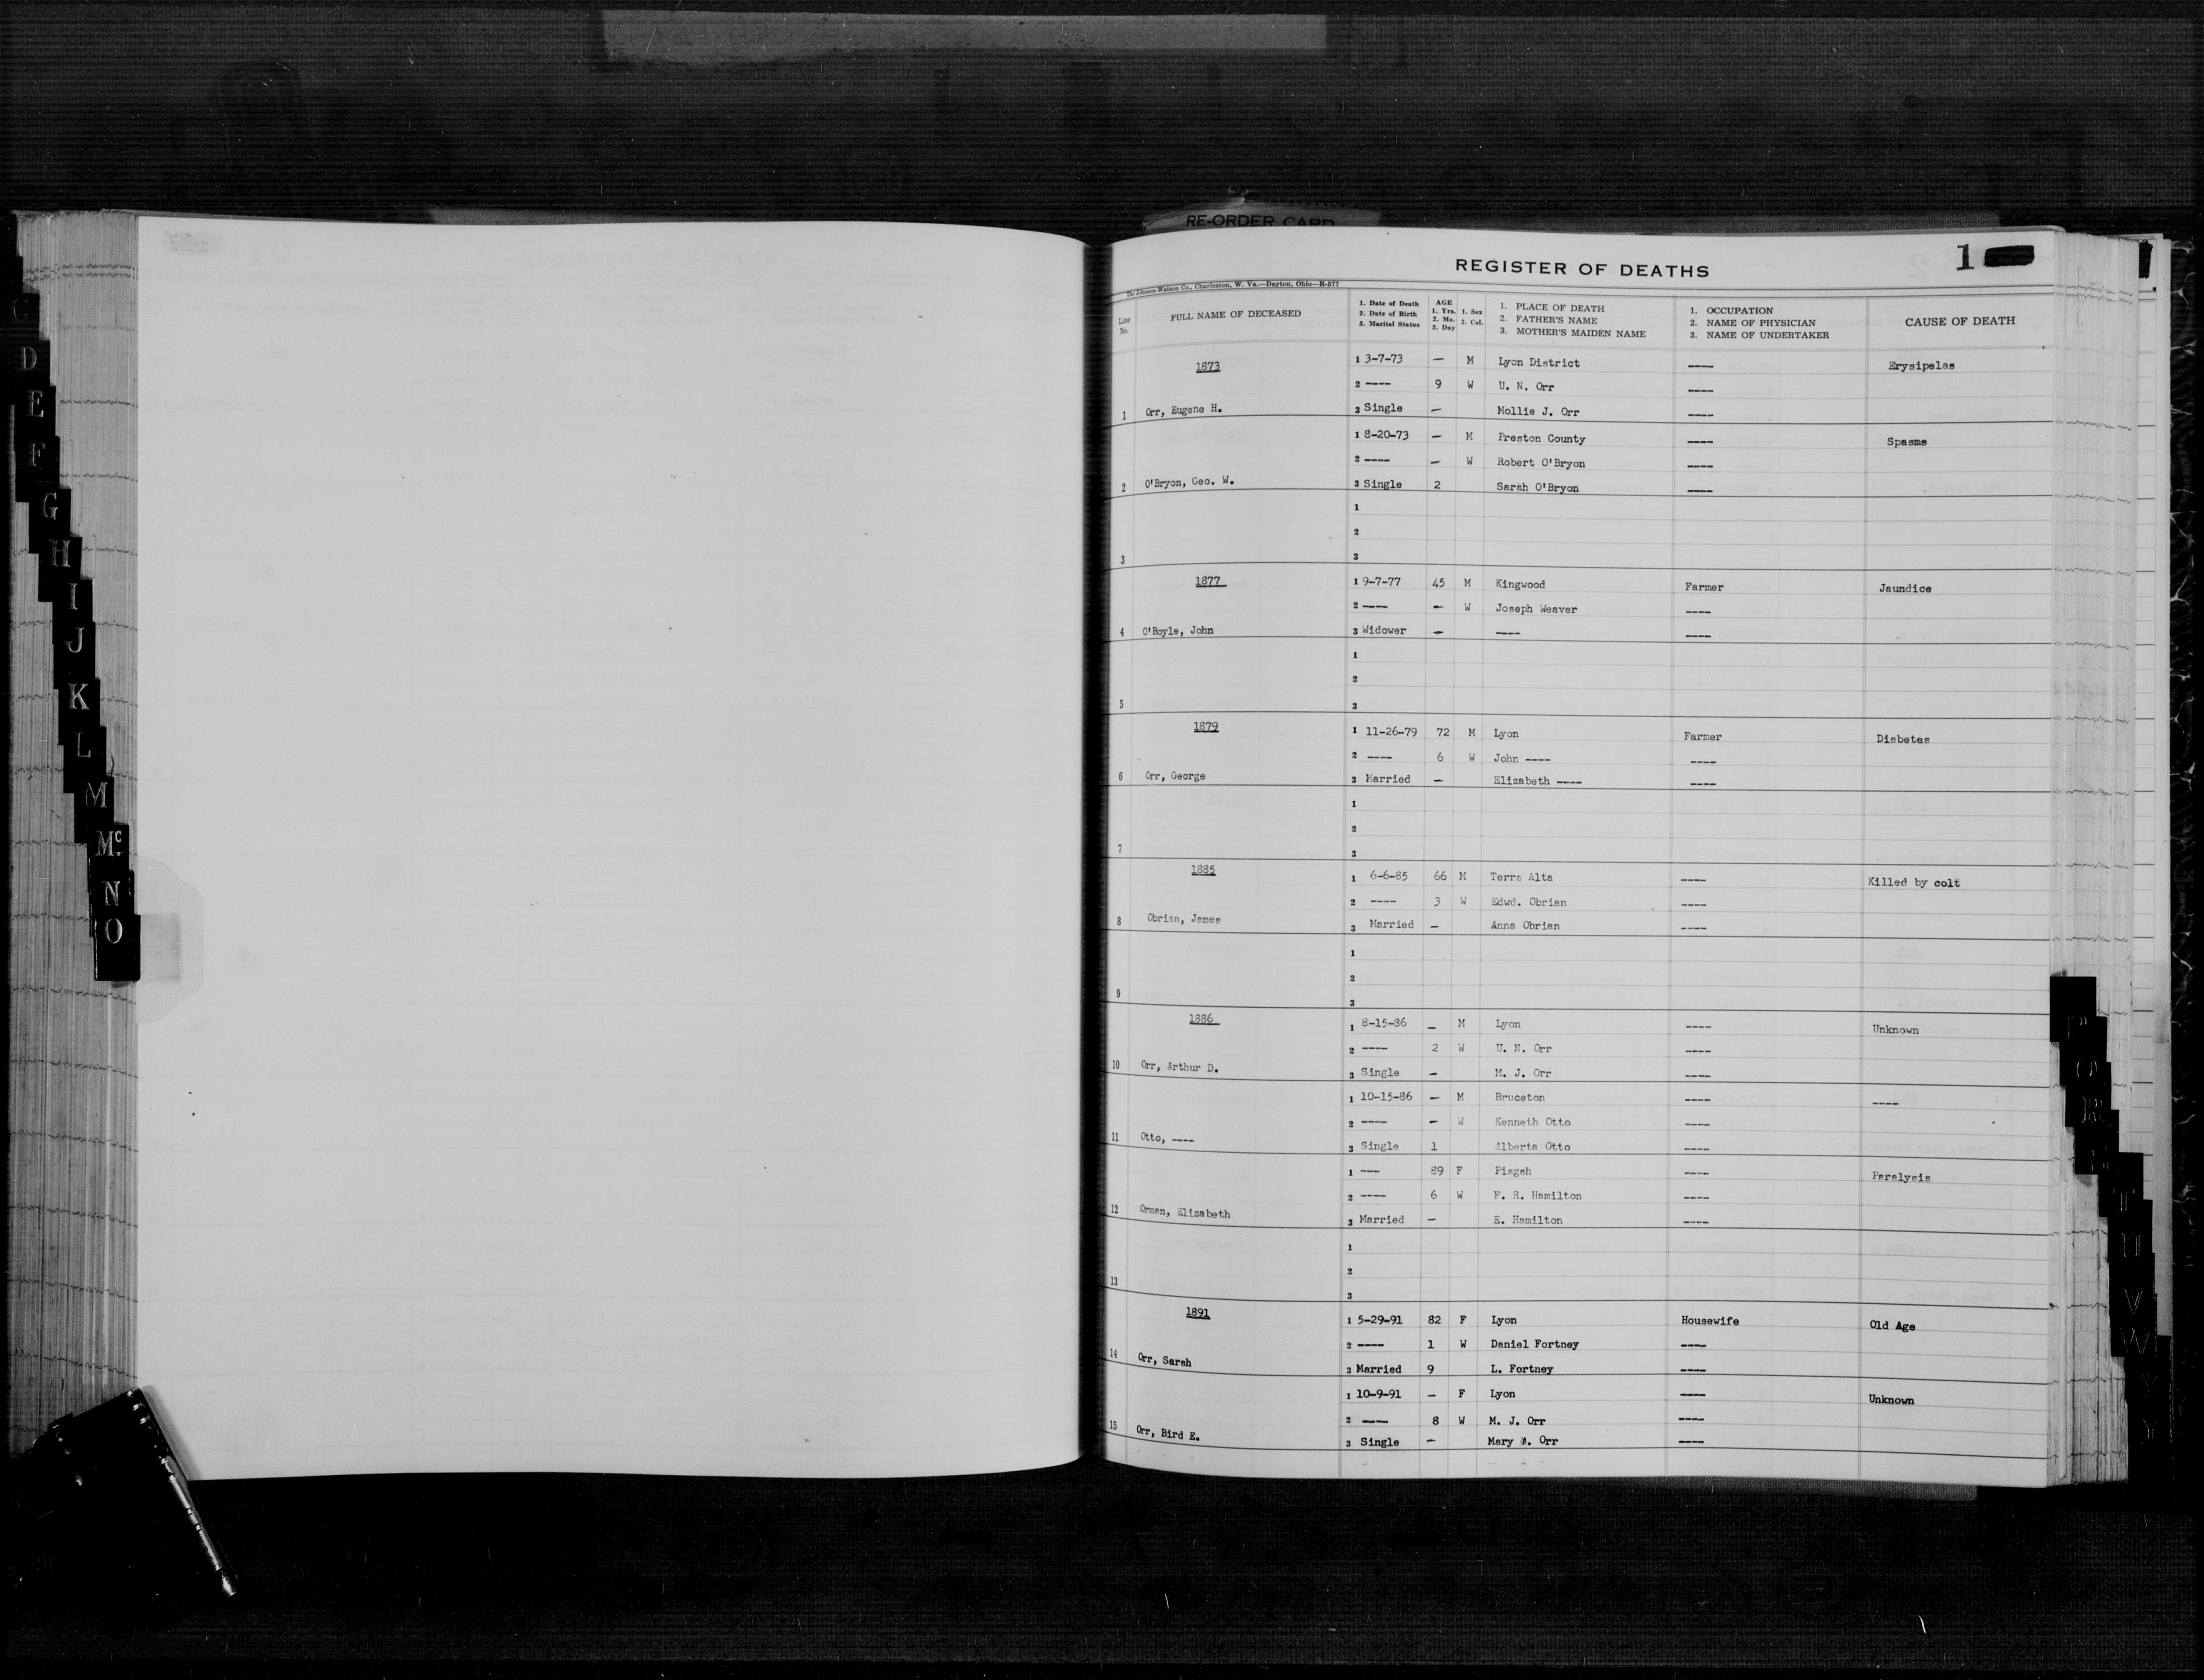 RE-ORDER CARD
REGISTER OF DEATHS 1
The Johnson-Watson Co., Charleston, W. Va.—Dayton, Ohio—R-577
Line No. FULL NAME OF DECEASED 1. Date of Death 2. Date of Birth 3. Marital Status AGE 1. Yrs. 2. Mo. 3. Day 1. Sex 2. Col. 1. PLACE OF DEATH 2. FATHER'S NAME 3. MOTHER'S MAIDEN NAME 1. OCCUPATION 2. NAME OF PHYSICIAN 3. NAME OF UNDERTAKER CAUSE OF DEATH
1873 1 3-7-73 — M Lyon District ---- Erysipelas
2 ---- 9 W U. N. Orr ----
1 Orr, Eugene H. 3 Single — Mollie J. Orr ----
1 8-20-73 — M Preston County ---- Spasms
2 ---- — W Robert O'Bryon ----
2 O'Bryon, Geo. W. 3 Single 2 Sarah O'Bryon ----
1
2
3 3
1877 1 9-7-77 45 M Kingwood Farmer Jaundice
2 ---- — W Joseph Weaver ----
4 O'Boyle, John 3 Widower — ---- ----
1
2
5 3
1879 1 11-26-79 72 M Lyon Farmer Diabetes
2 ---- 6 W John ---- ----
6 Orr, George 3 Married — Elizabeth ---- ----
1
2
7 3
1885 1 6-6-85 66 M Terra Alta ---- Killed by colt
2 ---- 3 W Edwd. Obrian ----
8 Obrian, James 3 Married — Anna Obrian ----
1
2
9 3
1886 1 8-15-86 — M Lyon ---- Unknown
2 ---- 2 W U. N. Orr ----
10 Orr, Arthur D. 3 Single — M. J. Orr ----
1 10-15-86 — M Bruceton ---- ----
2 ---- — W Kenneth Otto ----
11 Otto, ---- 3 Single 1 Alberta Otto ----
1 --- 89 F Pisgah ---- Paralysis
2 ---- 6 W F. R. Hamilton ----
12 Orman, Elizabeth 3 Married — E. Hamilton ----
1
2
13 3
1891 1 5-29-91 82 F Lyon Housewife Old Age
2 ---- 1 W Daniel Fortney ----
14 Orr, Sarah 3 Married 9 L. Fortney ----
1 10-9-91 — F Lyon ---- Unknown
2 ---- 8 W M. J. Orr ----
15 Orr, Bird E. 3 Single — Mary . Orr ----
C
D
E
F
G
H
I
J
K
L
M
Mc.
N
O
P
Q
R
T
U
V
W
Y